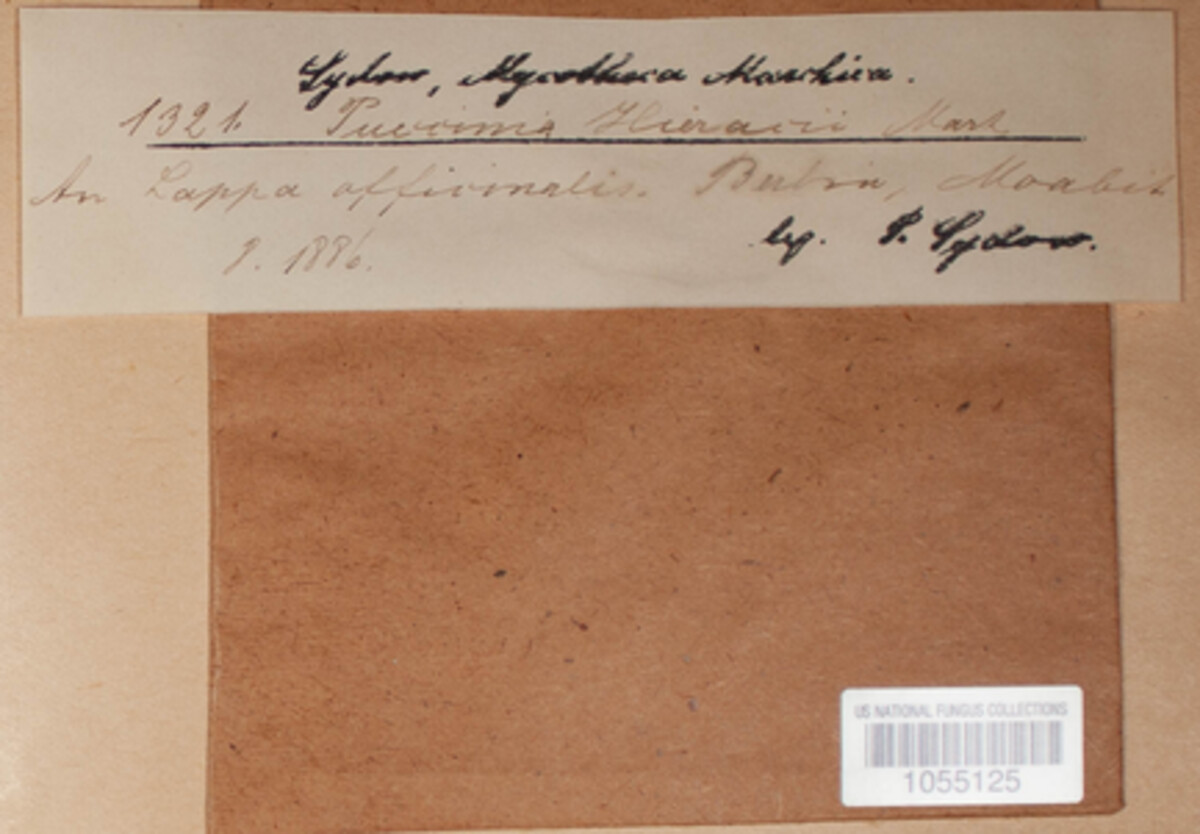 Sydow, Mycotheca Marchica.
1321. Puccinia Hieracii Mart
An Lappa officinalis. Berlin, Moabit
9. 1886.
leg. P. Sydow.
US NATIONAL FUNGUS COLLECTIONS
1055125